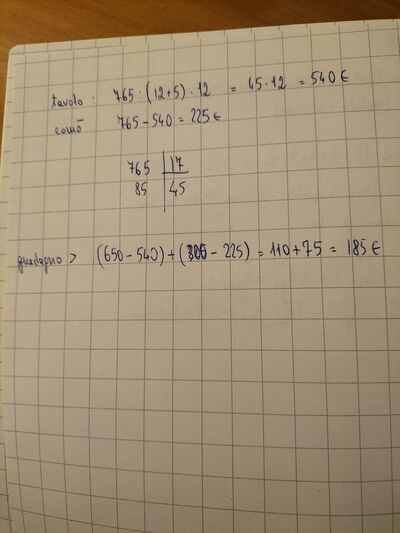 tavolo : 765 · (12+5) · 12 = 45 · 12 = 540 €
comò 765 - 540 = 225 €
765 | 17
85 | 45
guadagno > (650 - 540) + (300 - 225) = 110 + 75 = 185 €